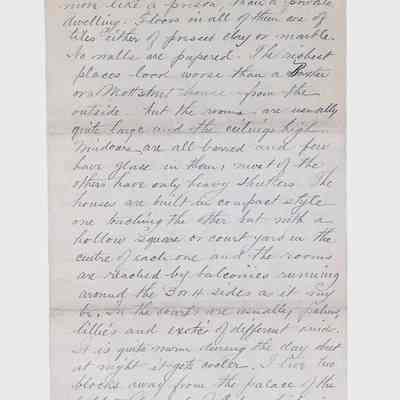 more like a prison than a private
dwelling. Floors in all of them are of
tiles either of pressed clay or marble.
No walls are papered. The richest
places look worse than a Baxter
or a Mott street house from the
outside but the rooms are usually
quite large and the ceilings high.
Windows are all barred and few
have glass in them, most of the
others have only heavy shutters. The
houses are built in compact style
one touching the other but with a
hollow square or court yard in the
centre of each one and the rooms
are reached by balconies running
around the 3 or 4 sides as it may
be. In the courts are usually palms,
lillies and exotics of different kinds.
It is quite warm during the day but
at night it gets cooler. I live two
blocks away from the palace of the